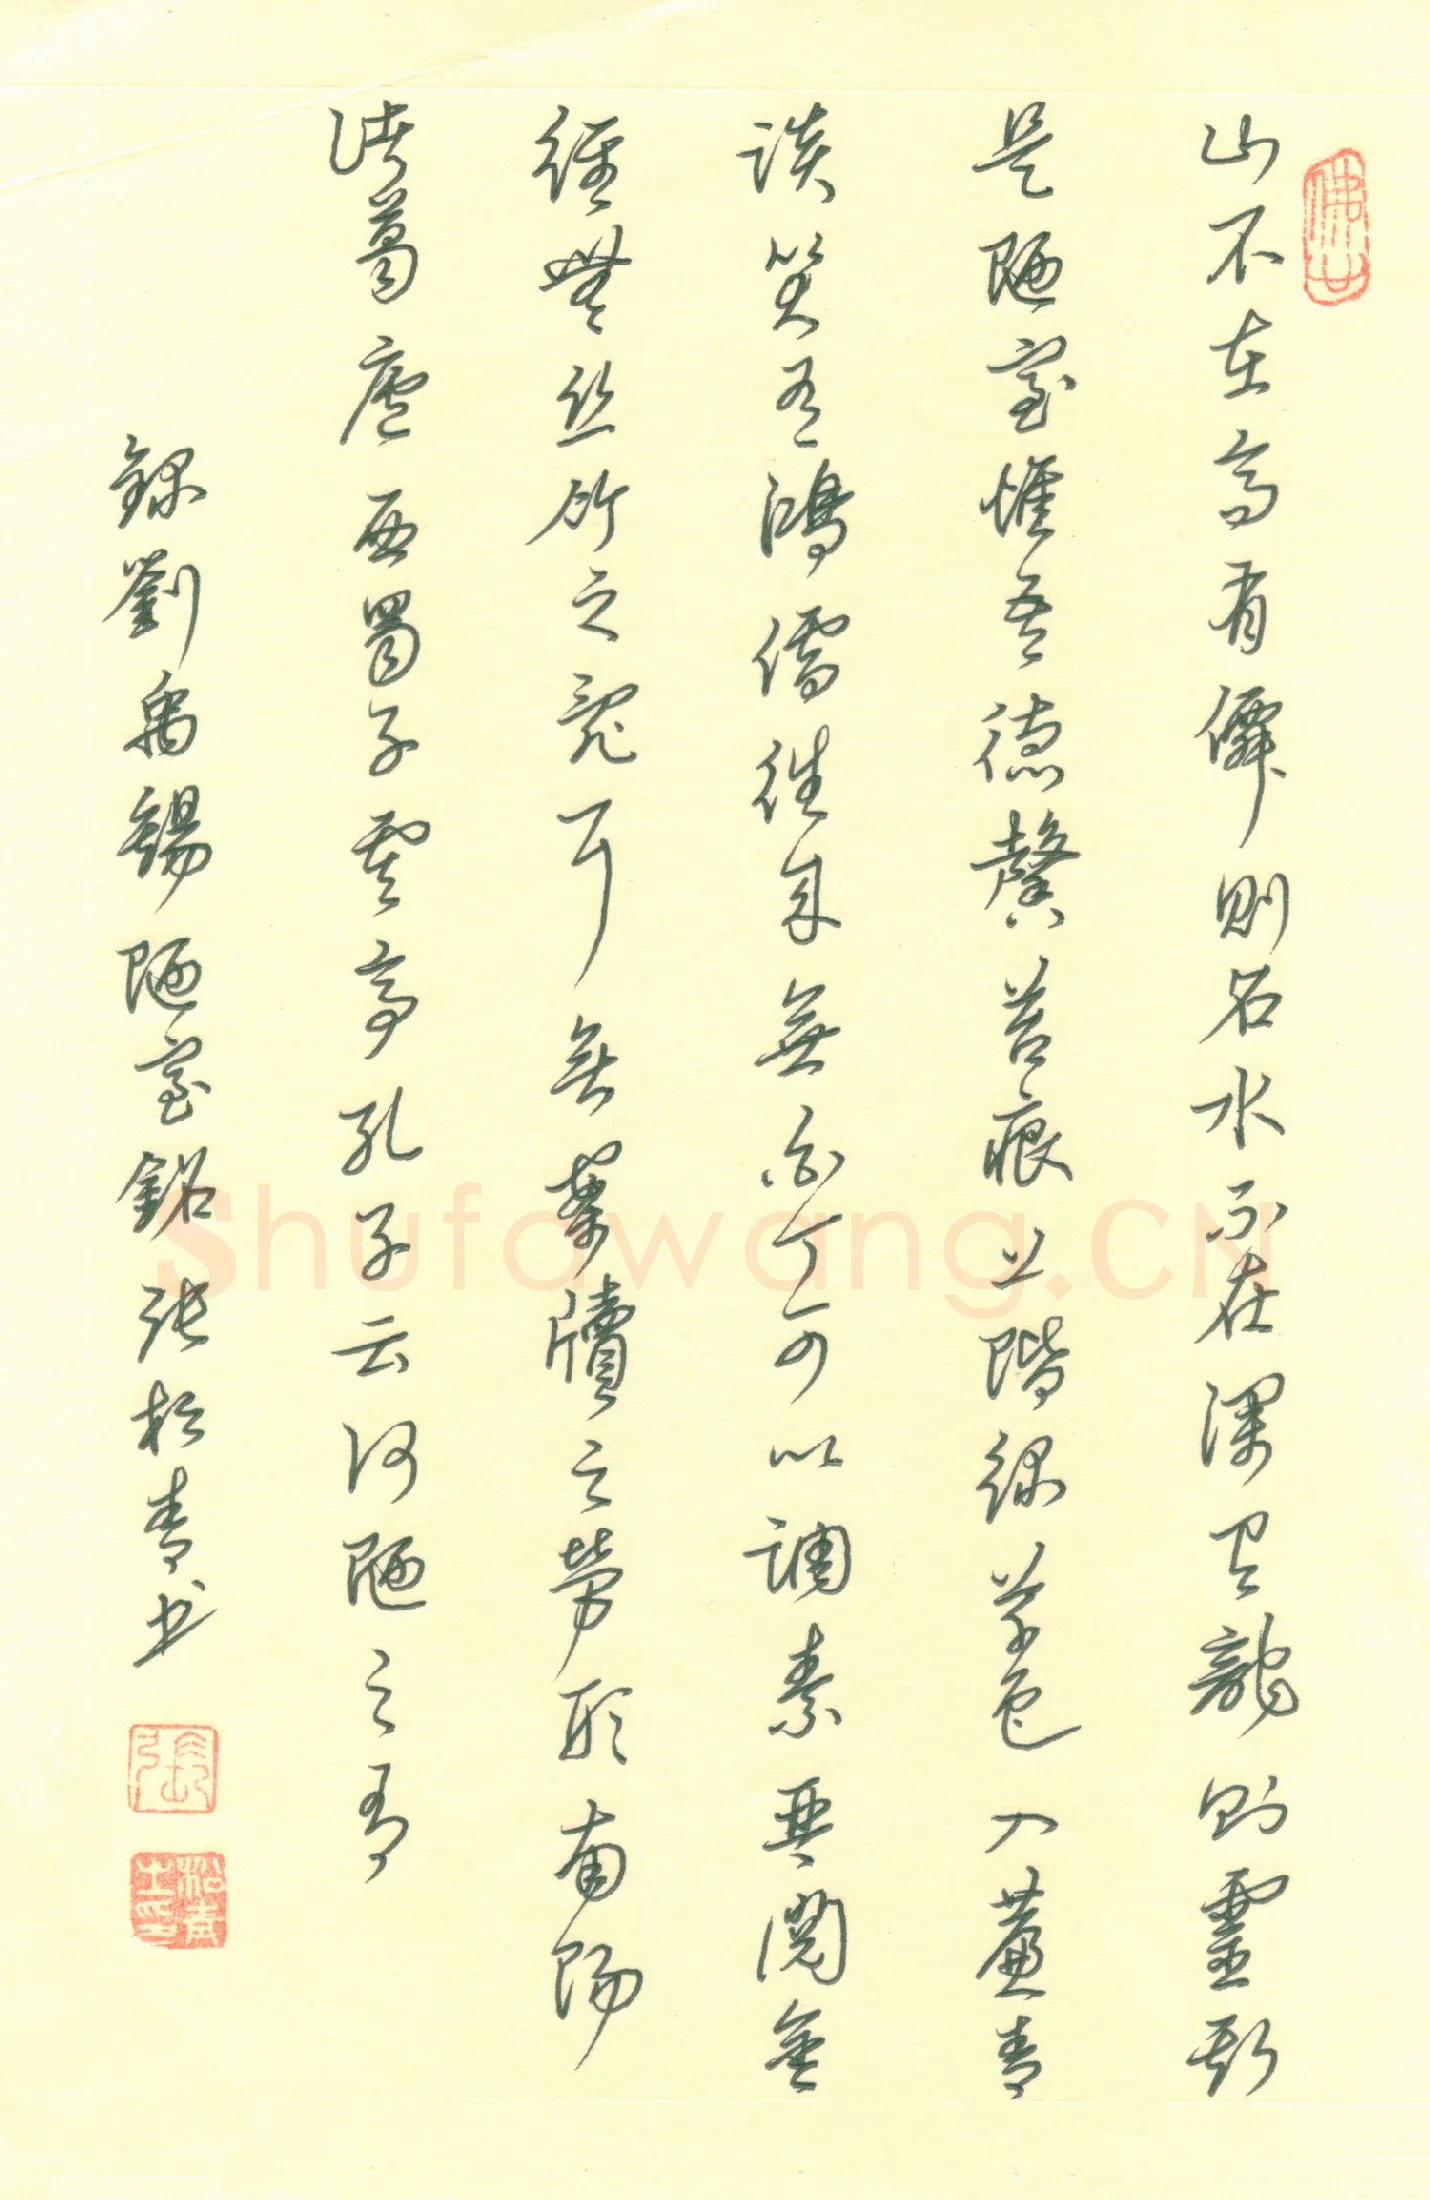 佛山
山不在高有僊則名水不在深有龍則靈斯
是陋室惟吾德馨苔痕上階緑草色入簾青
談笑有鴻儒往来無白丁可以調素琴閲金
經無丝竹之亂耳無案牘之勞形南陽
諸葛廬西蜀子雲亭孔子云何陋之有
録劉禹錫陋室銘張松青书
張
松青之印
Shufawang.CN